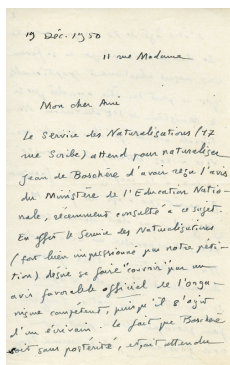 19 Déc. 1950
11 rue Madame
Mon cher Ami
Le Service des Naturalisations (17
rue Scribe) attend pour naturaliser
Jean de Boschère d'avoir reçu l'avis
du Ministère de l'Education Natio-
nale, récemment consulté à ce sujet.
En effet le Service des Naturalisations
(fort bien impressionné par notre péti-
tion) désire se faire "couvrir" par un
avis favorable officiel de l'orga-
nisme compétent, puisqu'il s'agit
d'un écrivain. Le fait que Boschère
soit sans postérité, étant attendu